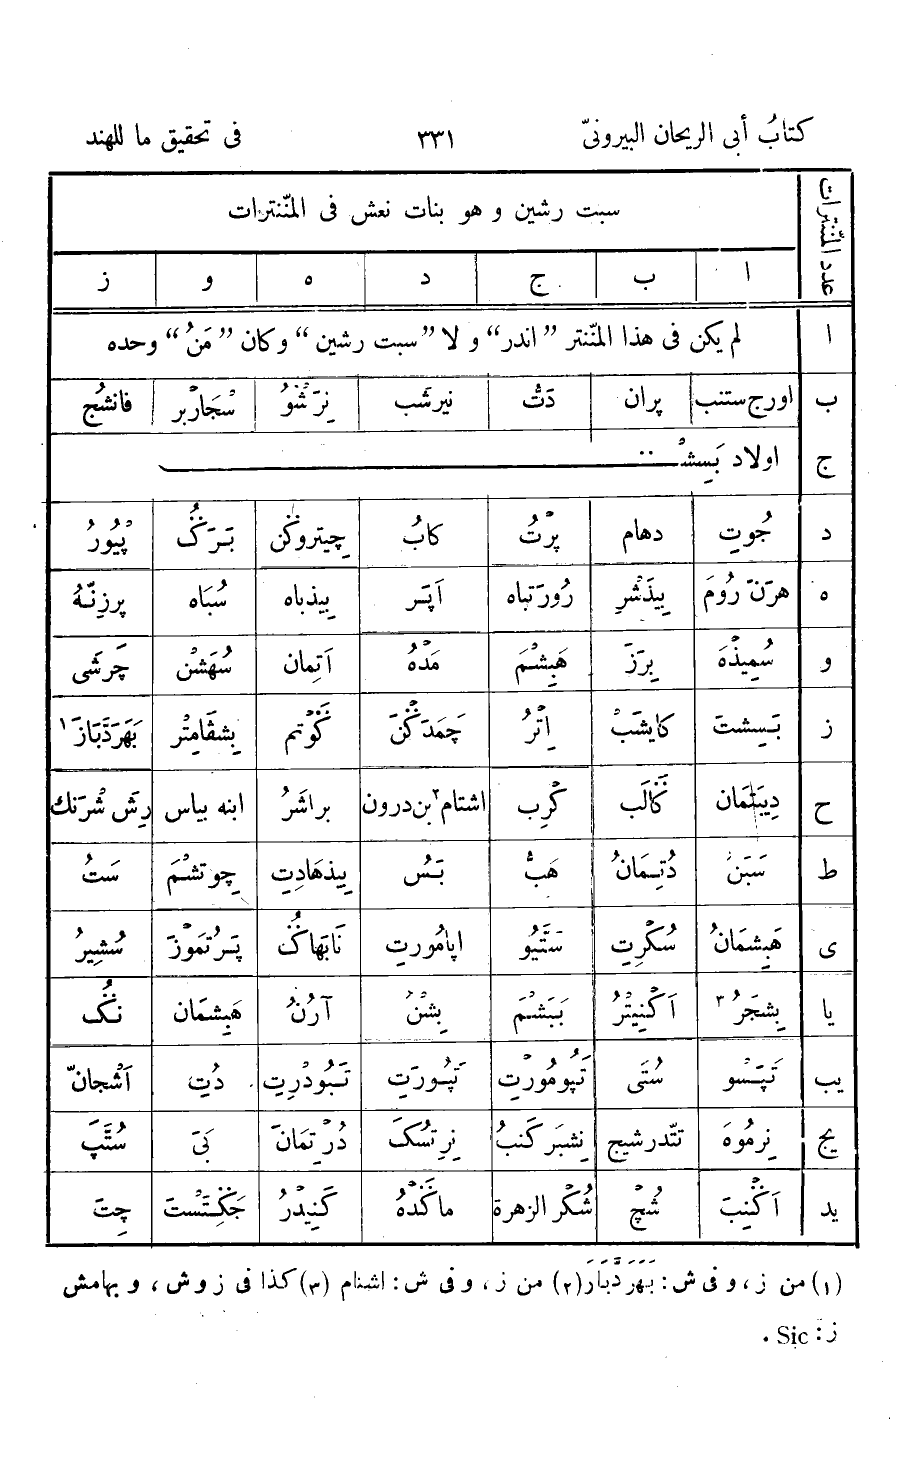 كتابُ أبى الريحان البيرونىّ ٣٣١ فى تحقيق ما للهند
عدد المّنترات
سبت رشين و هو بنات نعش فى المّنترات
ا ب ج د ه و ز
ا لم يكن فى هذا المّنتر ”اندر“ و لا ”سبت رشين“ وكان ”مَنُ“ وحده
ب اورج ستنب پران دَتُّ نيرشَب نِرَشْنُو سُجَاربر فانشُج
ج اولاد بَسِشْتُ
د جُوتِ دهام پرْتُ كابُ چيتروكُن بَرَكُّ پِيُورُ
ه هرَنَ رُومَ بيذَشْرِ رُورَتباه اَپَر بيذباه سُبَاه پرزنّهُ
و سُميذَهَ بِرَزَ هَبِشْمَ مَدَهُ اَتِمان سُهَشْن چَرشَى
ز بَسِشت كايشَب اترُ جَمَدَكْنَ كَوتم بشفَامتر بَهَردَّبَازَ١
ح دِيبَتِمان كَالَب كَرِب اشتام٢ بن درون براشَرُ ابنه بياس رِشَ شْرَنك
ط سَبَنُ دُتِمَانُ هَبُّ بَسُ بيذهادِتِ جوتشْمَ سَتُ
ى هَبِشمانُ سُكَرتِ سَتَّيو اپامُورتِ نَابهاكُ پَرتُموَزَ سُشِيرُ
يا بشجَرُ٣ اَكنِيتْرُ بَبَشْمَ بِشنُ آرُنُ هَبِشمَان نكُّ
يب تَپَسو سُتَى تَپومُورتِ تَپُورَتِ تَبُودْرِتِ دُتِ اَشْجانّ
يج نرمُوهَ تتَدرشيج نشبَر كَنبُ نرتسُكَ دُرتمَانَ بَىَ سُتَّپ
يد اَكْنِبَ شُچِ شُكْر الزهرة ماكَدَهُ كَنِيدْرُ جَكِتَسْتَ چتَ
(١) من ز، و فى ش : بَهَردَّبَارَ (٢) من ز ، و فى ش : اشنام (٣) كذا فى ز و ش ، و بهامش
ز : Sic .